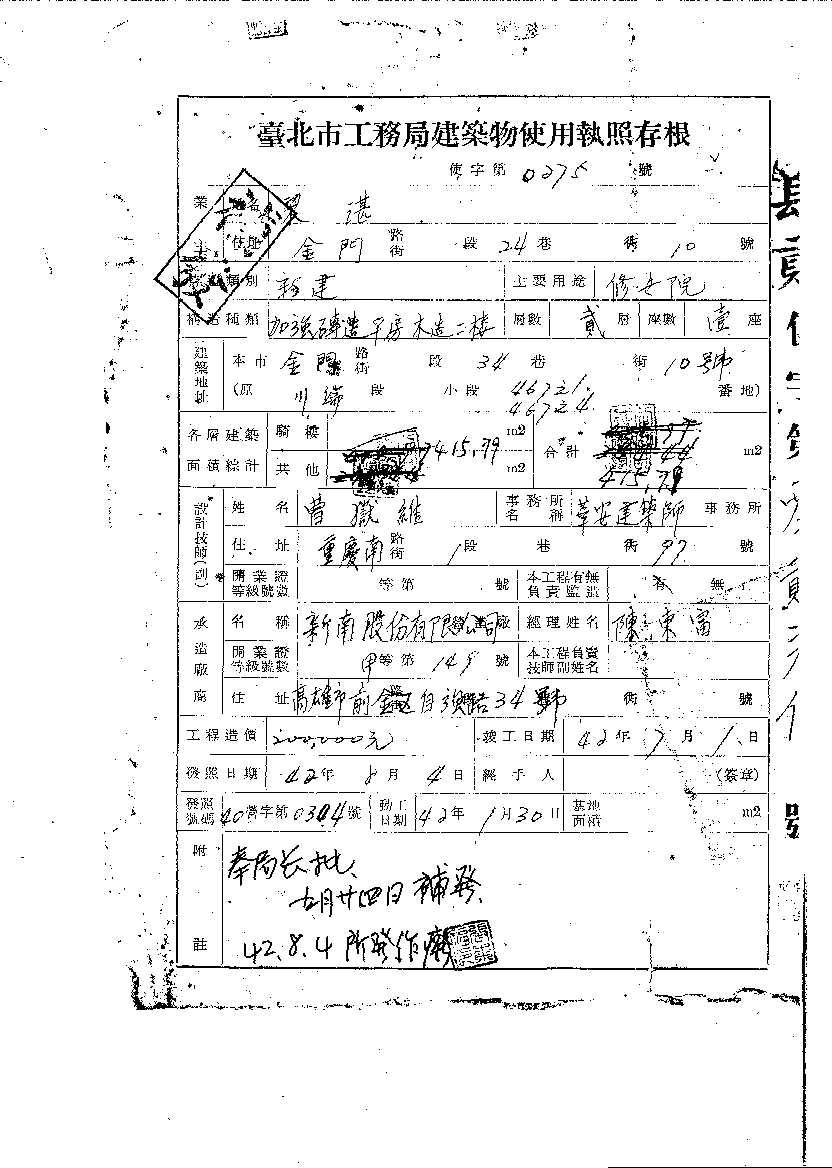 臺北市工務局建築物使用執照存根
使字第 0275 號
業 姓名 湛
主 住址 金門 路街 段 24 巷 街 10 號
類別 新建 主要用途 修女院
構造種類 加強磚造平房木造二樓 層數 貳 層 座數 壹 座
建築地址 本市 金門 路街 段 34 巷 街 10號
(原 川端 段 小段 467之1. 467之4 番地)
各層建築面積綜計 騎樓 m2 合計 m2
其他 415.79 m2 415.79
設計技師(副) 姓名 曹嶽維 事務所名稱 華安建築師 事務所
住址 重慶南 路街 1 段 巷 街 97 號
開業證等級號數 等第 號 本工程有無負責監造 有 無
承造廠商 名稱 新南股份有限公司 經理姓名 陳東富
開業證等級號數 甲等第 149 號 本工程負責技師副姓名
住址 高雄市前金區自強路34號 街 號
工程造價 200,000元 竣工日期 42年 7月 1日
發照日期 42年 8月 4日 經手人 (簽章)
發照號碼 40營字第0344號 動工日期 42年 1月30日 基地面積 m2
附註 奉局长批、
月廿四日補發
42.8.4所發作廢